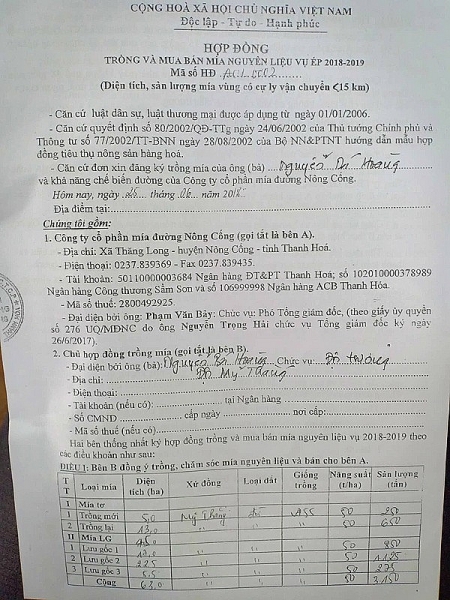 CỘNG HOÀ XÃ HỘI CHỦ NGHĨA VIỆT NAM
Độc lập - Tự do - Hạnh phúc
HỢP ĐỒNG
TRỒNG VÀ MUA BÁN MÍA NGUYÊN LIỆU VỤ ÉP 2018-2019
Mã số HĐ
(Diện tích, sản lượng mía vùng có cự ly vận chuyển ≤15 km)
- Căn cứ luật dân sự, luật thương mại được áp dụng từ ngày 01/01/2006.
- Căn cứ quyết định số 80/2002/QĐ-TTg ngày 24/06/2002 của Thủ tướng Chính phủ và
Thông tư số 77/2002/TT-BNN ngày 28/08/2002 của Bộ NN&PTNT hướng dẫn mẫu hợp
đồng tiêu thụ nông sản hàng hoá.
- Căn cứ đơn xin đăng ký trồng mía của ông (bà) Nguyễn Bá Hoàng
và khả năng chế biến đường của Công ty cổ phần mía đường Nông Cống.
Hôm nay, ngày 25 tháng 06 năm 2018
Địa điểm tại:
Chúng tôi gồm:
1. Công ty cổ phần mía đường Nông Cống (gọi tắt là bên A).
- Địa chỉ: Xã Thăng Long - huyện Nông Cống - tỉnh Thanh Hoá.
- Điện thoại: 0237.839369 - Fax 0237.839435.
- Tài khoản: 50110000003684 Ngân hàng ĐT&PT Thanh Hoá; số 102010000378989
Ngân hàng Công thương Sầm Sơn và số 106999998 Ngân hàng ACB Thanh Hóa.
- Mã số thuế: 2800492925.
- Đại diện bởi ông: Phạm Văn Bảy; Chức vụ: Phó Tổng giám đốc, (theo giấy ủy quyền
số 276 UQ/MĐNC do ông Nguyễn Trọng Hải chức vụ Tổng giám đốc ký ngày
26/6/2017).
2. Chủ hợp đồng trồng mía (gọi tắt là bên B).
- Đại diện bởi ông (bà): Nguyễn Bá Hoàng Chức vụ: Đ trưởng
- Địa chỉ: Đ Mỹ Thắng
- Điện thoại:
- Tài khoản (nếu có): tại Ngân hàng
- Số CMND cấp ngày nơi cấp:
- Mã số thuế (nếu có)
Hai bên thống nhất ký hợp đồng trồng và mua bán mía nguyên liệu vụ 2018-2019 theo
các điều khoản như sau:
ĐIỀU 1: Bên B đồng ý trồng, chăm sóc mía nguyên liệu và bán cho bên A.
TT Loại mía Diện tích (ha) Xứ đồng Loại đất Giống trồng Năng suất (t/ha) Sản lượng (tấn)
I Mía tơ
1 Trồng mới 5,0 Mỹ Thắng 50 250
2 Trồng lại 13,0 " " " 50 650
II Mía LG 45,0
1 Lưu gốc 1 " " " 50
2 Lưu gốc 2 22,5 " " " 50 1.125
3 Lưu gốc 3 5,5 " " " 50 275
Cộng 63,0 " " " 50 3.150